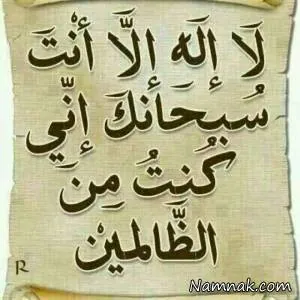 لَا إِلَهَ إِلَّا أَنْتَ
سُبحَانَكَ إِنِّي
كُنتُ مِنَ
الظَّالمِينْ
R
Namnak.com